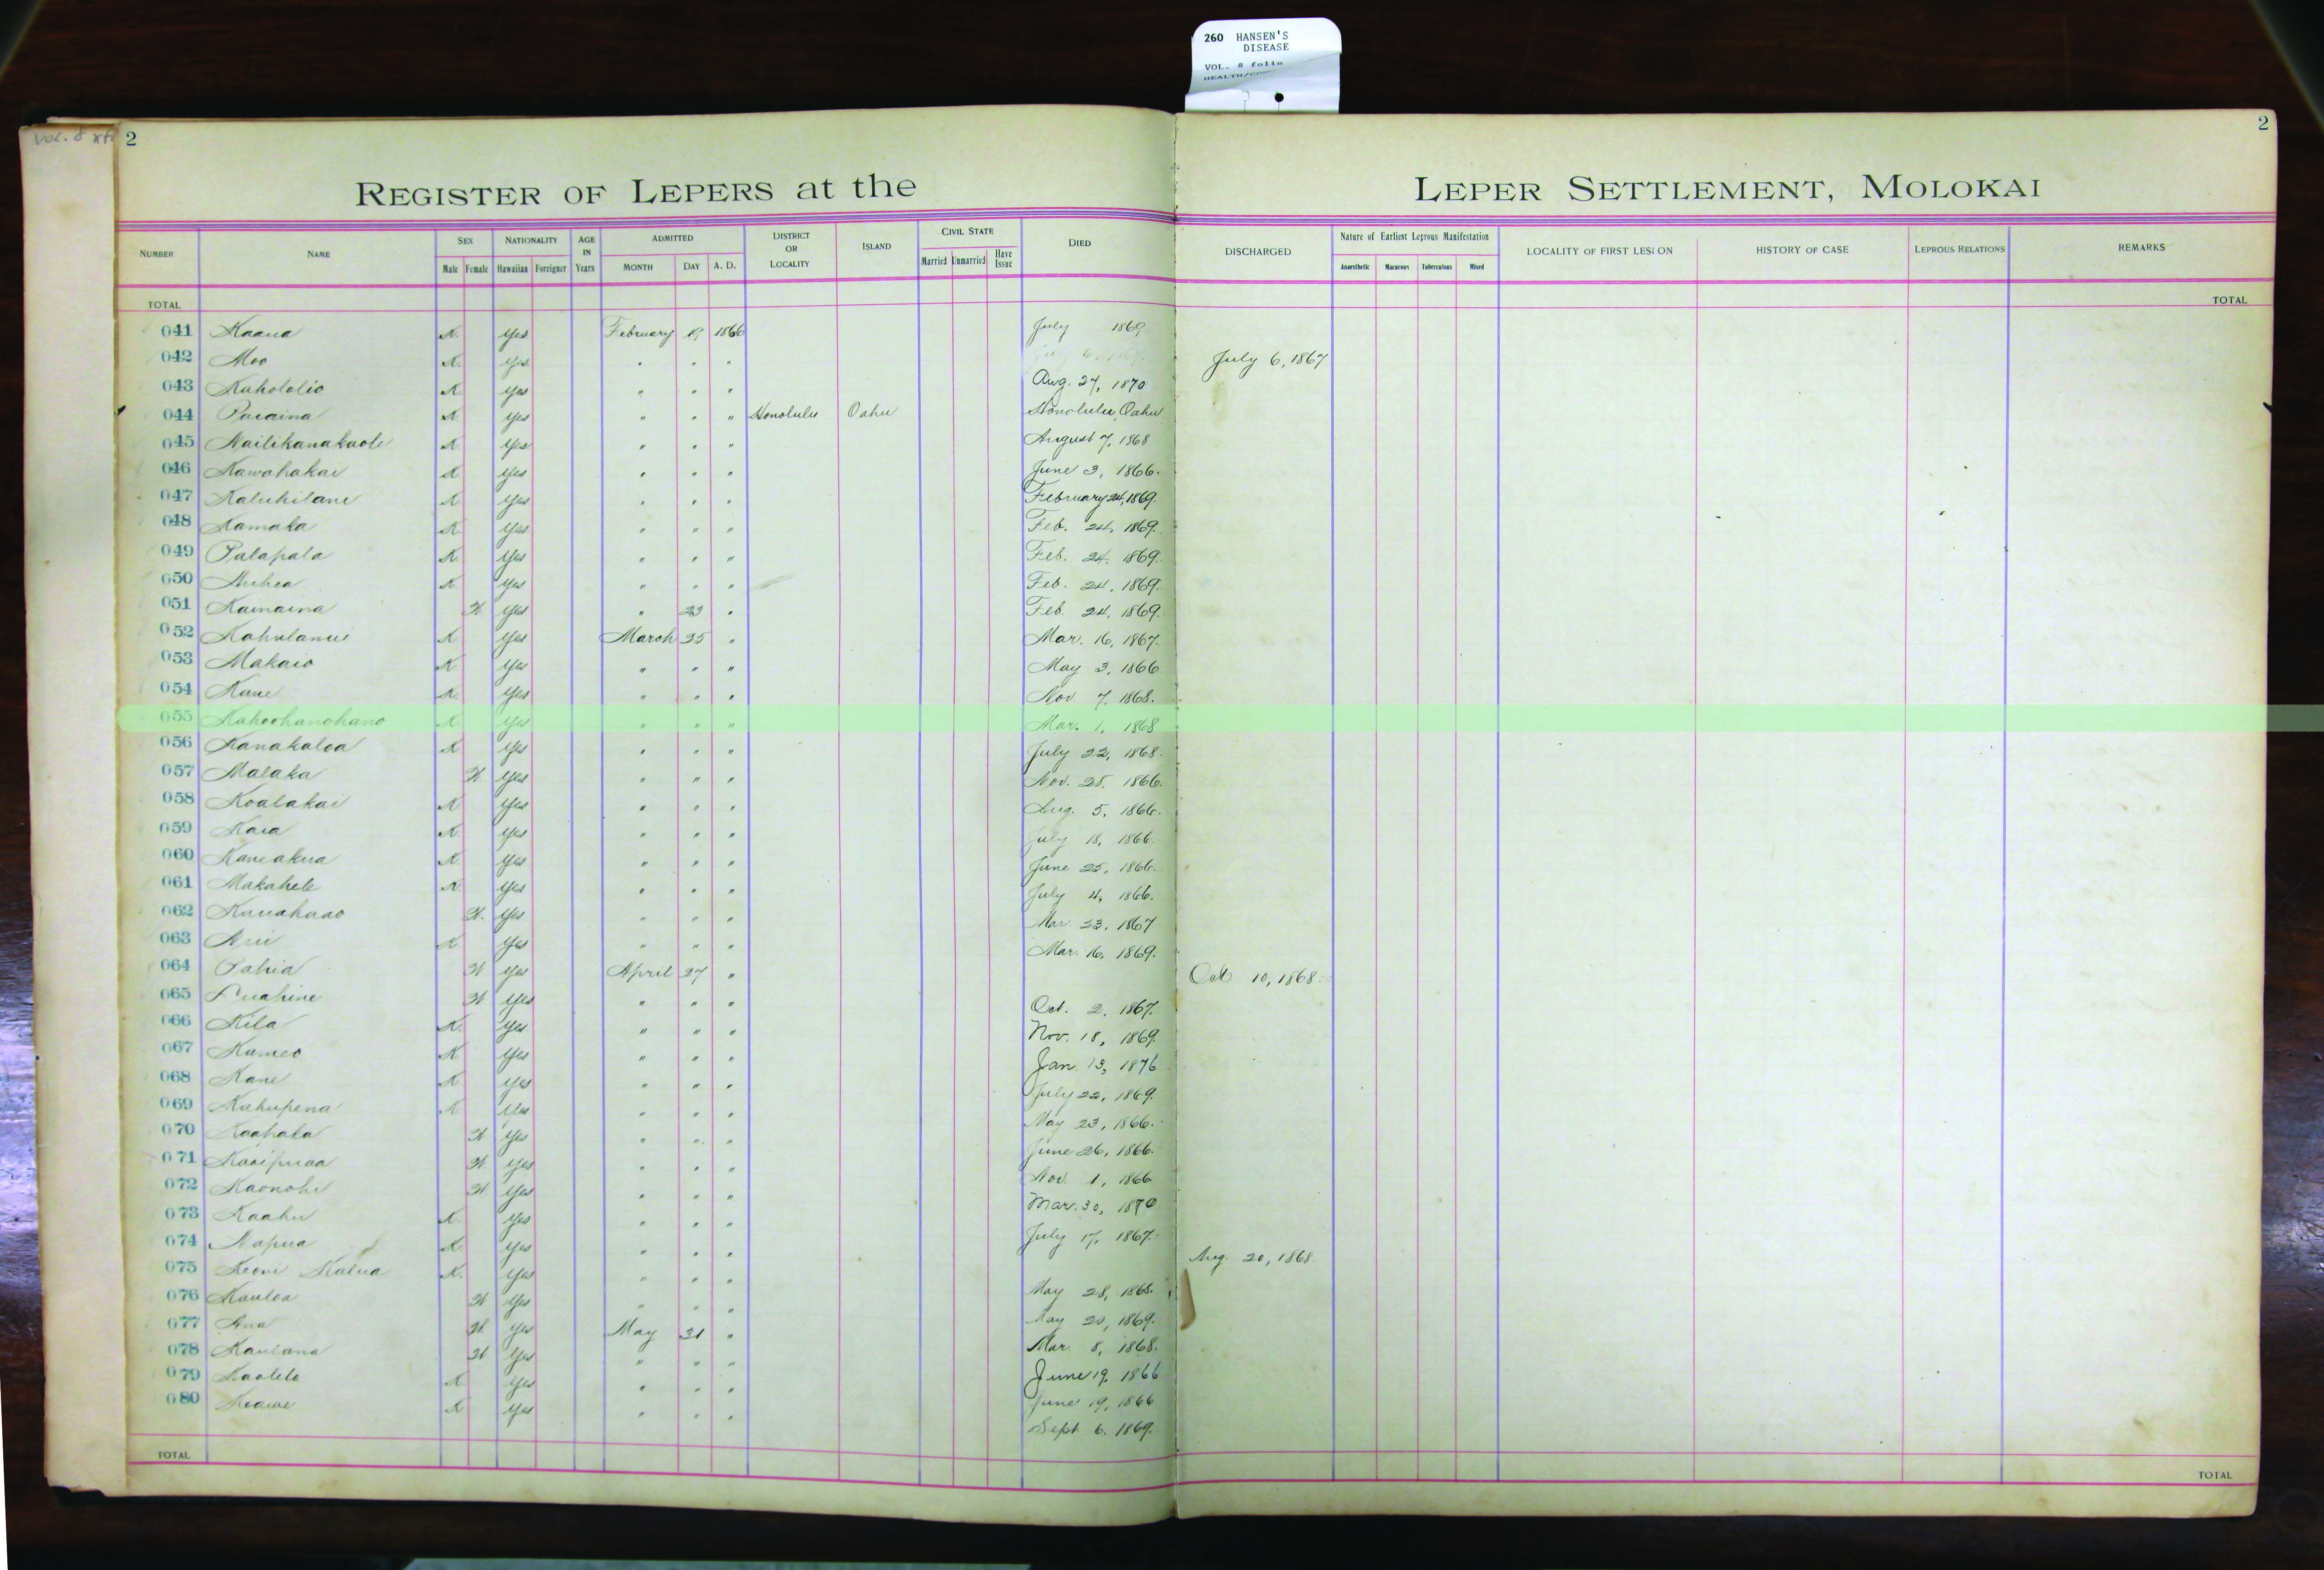 260 HANSEN'S
DISEASE
VOL. 8 folio
vol. 8
2
2
REGISTER OF LEPERS at the LEPER SETTLEMENT, MOLOKAI
NUMBER NAME SEX NATIONALITY AGE IN Years ADMITTED DISTRICT OR LOCALITY ISLAND CIVIL STATE DIED DISCHARGED Nature of Earliest Leprous Manifestation LOCALITY OF FIRST LESION HISTORY OF CASE LEPROUS RELATIONS REMARKS
Male Female Hawaiian Foreigner MONTH DAY A. D. Married Unmarried Have Issue Anaesthetic Macurous Tuberculous Mixed
TOTAL TOTAL
041 Kaaua K. Yes February 19 1866 July 1869
042 Moo K. Yes " " " July 6, 1867
043 Kahololio K Yes " " " Aug. 27, 1870
044 Puaaina K Yes " " " Honolulu Oahu Honolulu, Oahu
045 Nailikanakaole K Yes " " " August 7, 1868
046 Kawahakai K Yes " " " June 3, 1866.
047 Kaluhilani K Yes " " " February 24, 1869.
048 Kamaka K Yes " " " Feb. 24, 1869.
049 Palapala K. Yes " " " Feb. 24, 1869.
050 Auhea K. Yes " " " Feb. 24, 1869.
051 Kamaina W. Yes " 23 " Feb. 24, 1869.
052 Kahulanui K Yes March 25 " Mar. 16, 1867.
053 Makaio K Yes " " " May 3, 1866
054 Kane K. Yes " " " Nov. 7, 1868.
055 Kahoohanohano K. Yes " " " Mar. 1, 1868
056 Kanakaloa K Yes " " " July 22, 1868.
057 Malaka W Yes " " " Nov. 28, 1866.
058 Koalakai K Yes " " " Aug. 5, 1866.
059 Kaia K. Yes " " " July 18, 1866.
060 Kaneakua K Yes " " " June 25, 1866.
061 Makahele K Yes " " " July 4, 1866.
062 Kauahaao W. Yes " " " Mar. 23, 1867
063 K Yes " " " Mar. 16, 1869.
064 Pahia W Yes April 27 " Oct 10, 1868.
065 Puahine W Yes " " " Oct. 2, 1867.
066 Kila K. Yes " " " Nov. 18, 1869.
067 Kameo K Yes " " " Jan. 13, 1876
068 Kane K Yes " " " July 22, 1869.
069 Kahupena K Yes " " " May 23, 1866.
070 Kaahala W Yes " " " June 26, 1866.
071 Kaaipuaa W. Yes " " " Nov. 1, 1866
072 Kaonohi W Yes " " " Mar. 30, 1870
073 Kaahu K. Yes " " " July 17, 1867.
074 Napua K Yes " " " Aug. 20, 1868.
075 Keoni Kalua K. Yes " " " May 28, 1868.
076 Kauloa W Yes " " " May 20, 1869.
077 Ana W. Yes May 31 " Mar. 8, 1868.
078 Kaulana W Yes " " " June 19, 1866
079 Kaolelo K Yes " " " June 19, 1866
080 Keawe K Yes " " " Sept 6, 1869.
TOTAL TOTAL